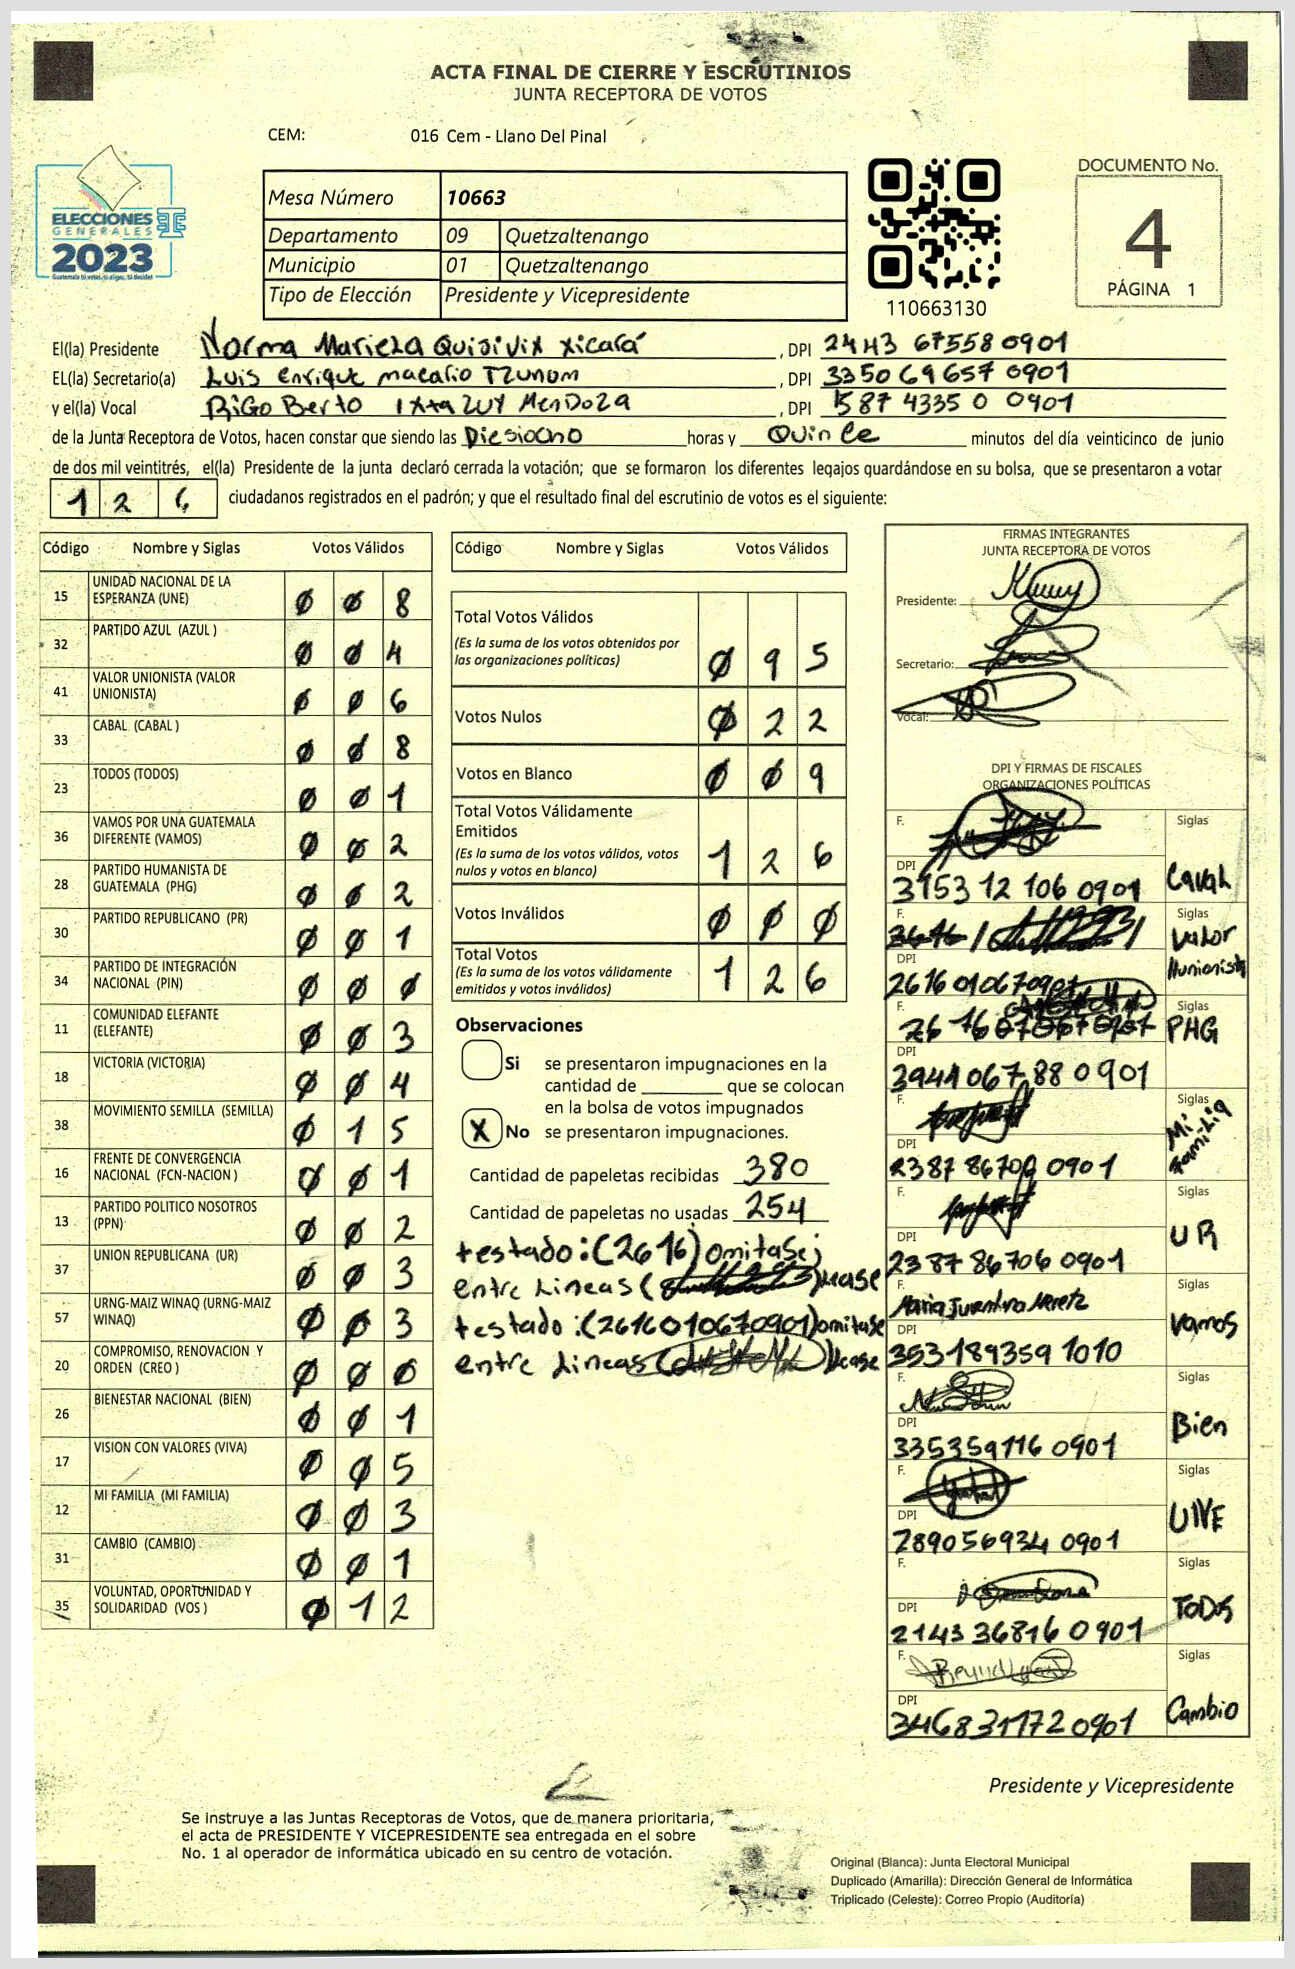 ACTA FINAL DE CIERRE Y ESCRUTINIOS
JUNTA RECEPTORA DE VOTOS
CEM: 016 Cem - Llano Del Pinal
ELECCIONES
GENERALES
2023
Mesa Número 10663
Departamento 09 Quetzaltenango
Municipio 01 Quetzaltenango
Tipo de Elección Presidente y Vicepresidente
110663130
DOCUMENTO No.
4
PÁGINA 1
El(la) Presidente Norma Mariela Quijivix xicará , DPI 2443 67558 0901
EL(la) Secretario(a) Luis enrique macario Tzunum , DPI 3350 69657 0901
y el(la) Vocal RiGo Berto Ixtazuy MenDoza , DPI 1587 4335 0 0901
de la Junta Receptora de Votos, hacen constar que siendo las Diesiocho horas y Quince minutos del día veinticinco de junio
de dos mil veintitrés, el(la) Presidente de la junta declaró cerrada la votación; que se formaron los diferentes legajos quardándose en su bolsa, que se presentaron a votar
1 2 6 ciudadanos registrados en el padrón; y que el resultado final del escrutinio de votos es el siguiente:
Código Nombre y Siglas Votos Válidos
15 UNIDAD NACIONAL DE LA ESPERANZA (UNE) 0 0 8
32 PARTIDO AZUL (AZUL ) 0 0 4
41 VALOR UNIONISTA (VALOR UNIONISTA) 0 0 6
33 CABAL (CABAL ) 0 0 8
23 TODOS (TODOS) 0 0 1
36 VAMOS POR UNA GUATEMALA DIFERENTE (VAMOS) 0 0 2
28 PARTIDO HUMANISTA DE GUATEMALA (PHG) 0 0 2
30 PARTIDO REPUBLICANO (PR) 0 0 1
34 PARTIDO DE INTEGRACIÓN NACIONAL (PIN) 0 0 0
11 COMUNIDAD ELEFANTE (ELEFANTE) 0 0 3
18 VICTORIA (VICTORIA) 0 0 4
38 MOVIMIENTO SEMILLA (SEMILLA) 0 1 5
16 FRENTE DE CONVERGENCIA NACIONAL (FCN-NACION ) 0 0 1
13 PARTIDO POLITICO NOSOTROS (PPN) 0 0 2
37 UNION REPUBLICANA (UR) 0 0 3
57 URNG-MAIZ WINAQ (URNG-MAIZ WINAQ) 0 0 3
20 COMPROMISO, RENOVACION Y ORDEN (CREO ) 0 0 0
26 BIENESTAR NACIONAL (BIEN) 0 0 1
17 VISION CON VALORES (VIVA) 0 0 5
12 MI FAMILIA (MI FAMILIA) 0 0 3
31 CAMBIO (CAMBIO) 0 0 1
35 VOLUNTAD, OPORTUNIDAD Y SOLIDARIDAD (VOS ) 0 1 2
Código Nombre y Siglas Votos Válidos
Total Votos Válidos
(Es la suma de los votos obtenidos por
las organizaciones políticas) 0 9 5
Votos Nulos 0 2 2
Votos en Blanco 0 0 9
Total Votos Válidamente
Emitidos
(Es la suma de los votos válidos, votos
nulos y votos en blanco) 1 2 6
Votos Inválidos 0 0 0
Total Votos
(Es la suma de los votos válidamente
emitidos y votos inválidos) 1 2 6
Observaciones
Si se presentaron impugnaciones en la
cantidad de ________ que se colocan
en la bolsa de votos impugnados
X No se presentaron impugnaciones.
Cantidad de papeletas recibidas 380
Cantidad de papeletas no usadas 254
testado: (2616) omitase;
entre Lineas ( ) Lease
testado: (2616010670901) omitase
entre Lineas ( ) Lease
FIRMAS INTEGRANTES
JUNTA RECEPTORA DE VOTOS
Presidente:
Secretario:
Vocal:
DPI Y FIRMAS DE FISCALES
ORGANIZACIONES POLÍTICAS
F. Siglas
DPI
3153 12 106 0901 Caval
F. 2616 Siglas
DPI Valor
2616 010670901 Unionista
F. 2616010670901 Siglas
DPI PHG
3941 067 88 0 901
F. Siglas
DPI Mi Familia
2387 86706 0901
F. Siglas
DPI UR
2387 86706 0901
F. Siglas
DPI Vamos
353189359 1010
F. Siglas
DPI Bien
335359116 0901
F. Siglas
DPI UNE
289056934 0901
F. Siglas
DPI TODOS
2143 36816 0901
F. Siglas
DPI Cambio
346831172 0901
Presidente y Vicepresidente
Se instruye a las Juntas Receptoras de Votos, que de manera prioritaria,
el acta de PRESIDENTE Y VICEPRESIDENTE sea entregada en el sobre
No. 1 al operador de informática ubicado en su centro de votación.
Original (Blanca): Junta Electoral Municipal
Duplicado (Amarilla): Dirección General de Informática
Triplicado (Celeste): Correo Propio (Auditoría)